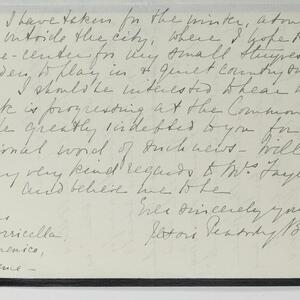 I have taken for the winter, a
outside the city, where I hope t
e-center for my small
to play in & quiet country
I should be interested to hear
k is progressing at the Common
e greatly indebted to you for
ional word of such news - Will
y very kind regards to Mrs Tayl
and believe me to be
Ever sincerely you
Peabody B
orricella
enico,